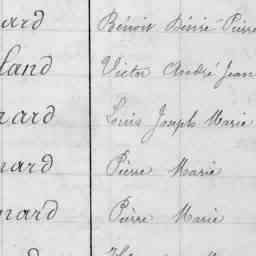 ard Bénoit Désiré Pierre
land Victor André Jean
nard Louis Joseph Marie
nard Pierre Marie
nard Pierre Marie